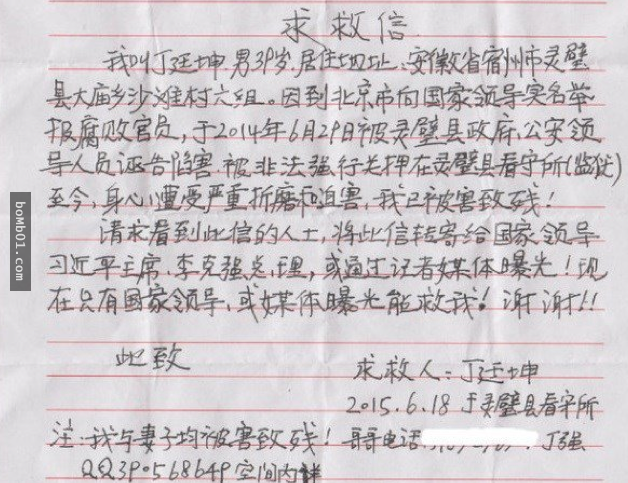 求救信
我叫丁廷坤,男39岁.居住地址:安徽省宿州市灵璧
县大庙乡沙滩村六组。因到北京市向国家领导实名举
报腐败官员,于2014年6月29日被灵璧县政府.公安领
导人员诬告陷害.被非法强行关押在灵璧县看守所(监狱)
至今,身心遭受严重折磨和迫害,我已被害致残!
请求看到此信的人士,将此信转寄给国家领导
习近平主席.李克强总理,或通过记者媒体曝光!现
在只有国家领导,或媒体曝光能救我!谢谢!!
此致
求救人:丁廷坤
2015.6.18于灵璧县看守所
注:我与妻子均被害致残!哥哥电话 丁强
QQ390568649空间内详
boMb01.com